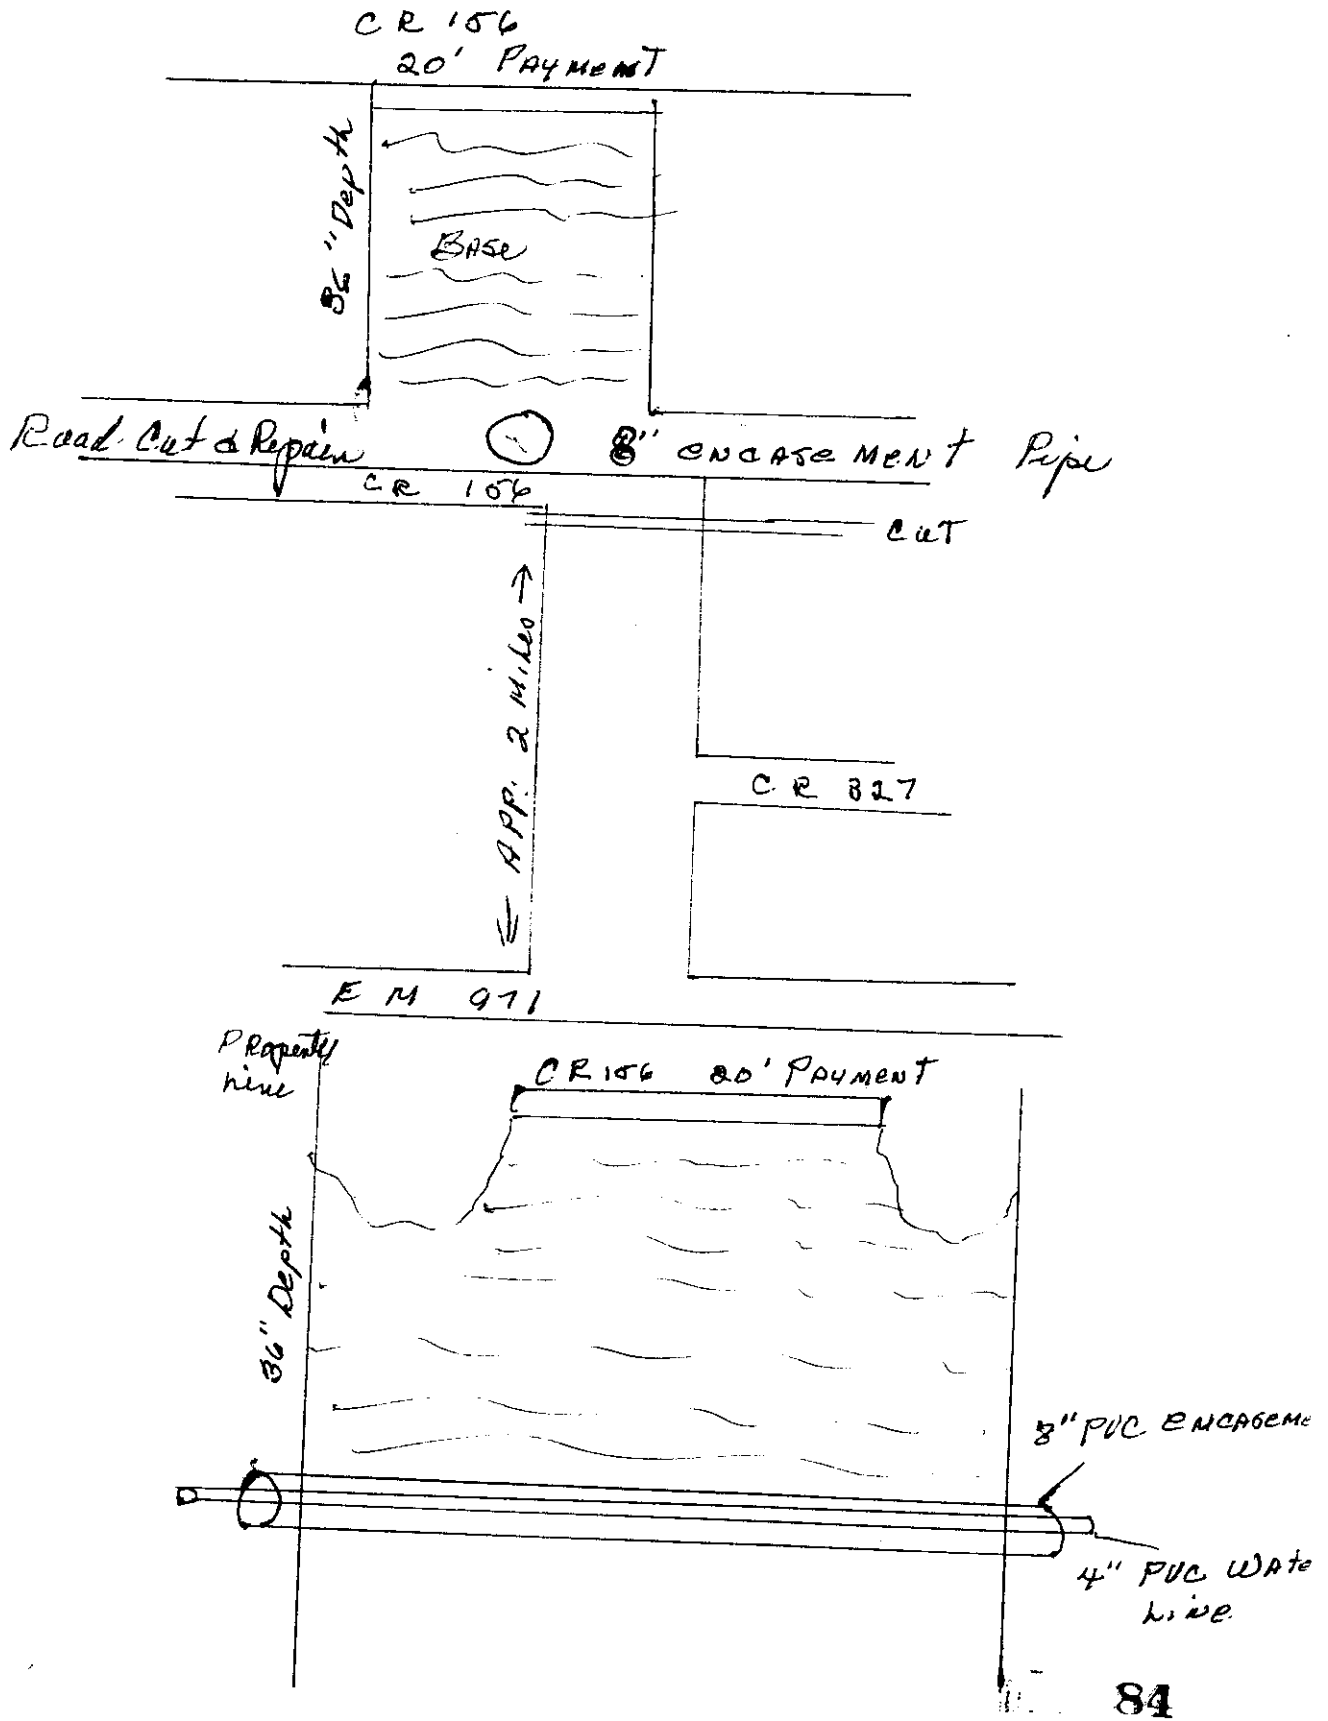 CR 156
20' PAYMENT
36" Depth
BASE
Road Cut & Repair
8" ENCASEMENT Pipe
CR 156
CUT
← APP. 2 Miles →
CR 327
FM 971
PROPERTY
Line
CR 156 20' PAYMENT
36" Depth
8" PVC ENCASEME
4" PVC WATE
Line
84